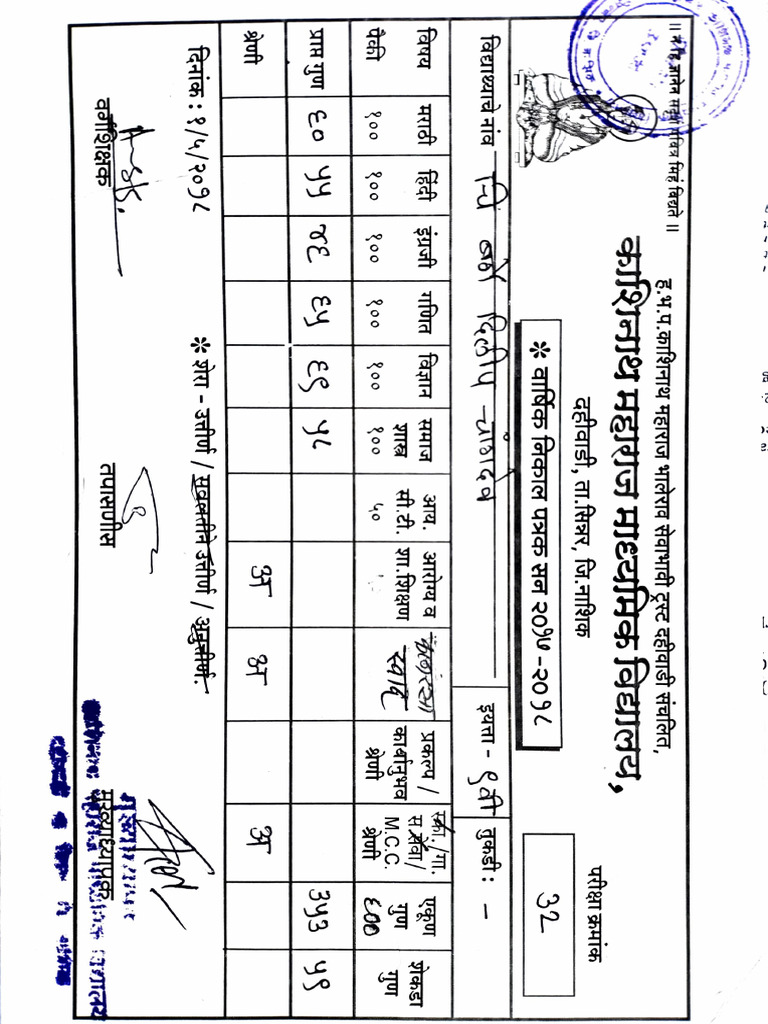 ॥ न हि ज्ञानेन सदृशं पवित्र मिहं विद्यते ॥
ह.भ.प.काशिनाथ महाराज भालेराव सेवाभावी ट्रस्ट दहीवाडी संचलित,
काशिनाथ महाराज माध्यमिक विद्यालय,
दहीवाडी, ता.सिन्नर, जि.नाशिक
परीक्षा क्रमांक
32
* वार्षिक निकाल पत्रक सन २०१७-२०१८
विद्यार्थ्याचे नांव चि दिलीप इयत्ता - ९वी तुकडी : -
विषय मराठी हिंदी इंग्रजी गणित विज्ञान समाज शास्त्र आय. सी.टी. आरोग्य व शा.शिक्षण प्रकल्प / कार्यानुभव श्रेणी स्का./गा. स.सेवा/ M.C.C. श्रेणी एकूण गुण शेकडा गुण
पैकी १०० १०० १०० १०० १०० १०० ५० ६००
प्राप्त गुण ६० ५५ ४६ ६५ ६९ ५८ ३५३ ५९
श्रेणी अ अ अ
दिनांक : १/५/२०१८ * शेरा - उत्तीर्ण / सवलतीने उत्तीर्ण / अनुत्तीर्ण.
वर्गशिक्षक तपासणीस मुख्याध्यापक